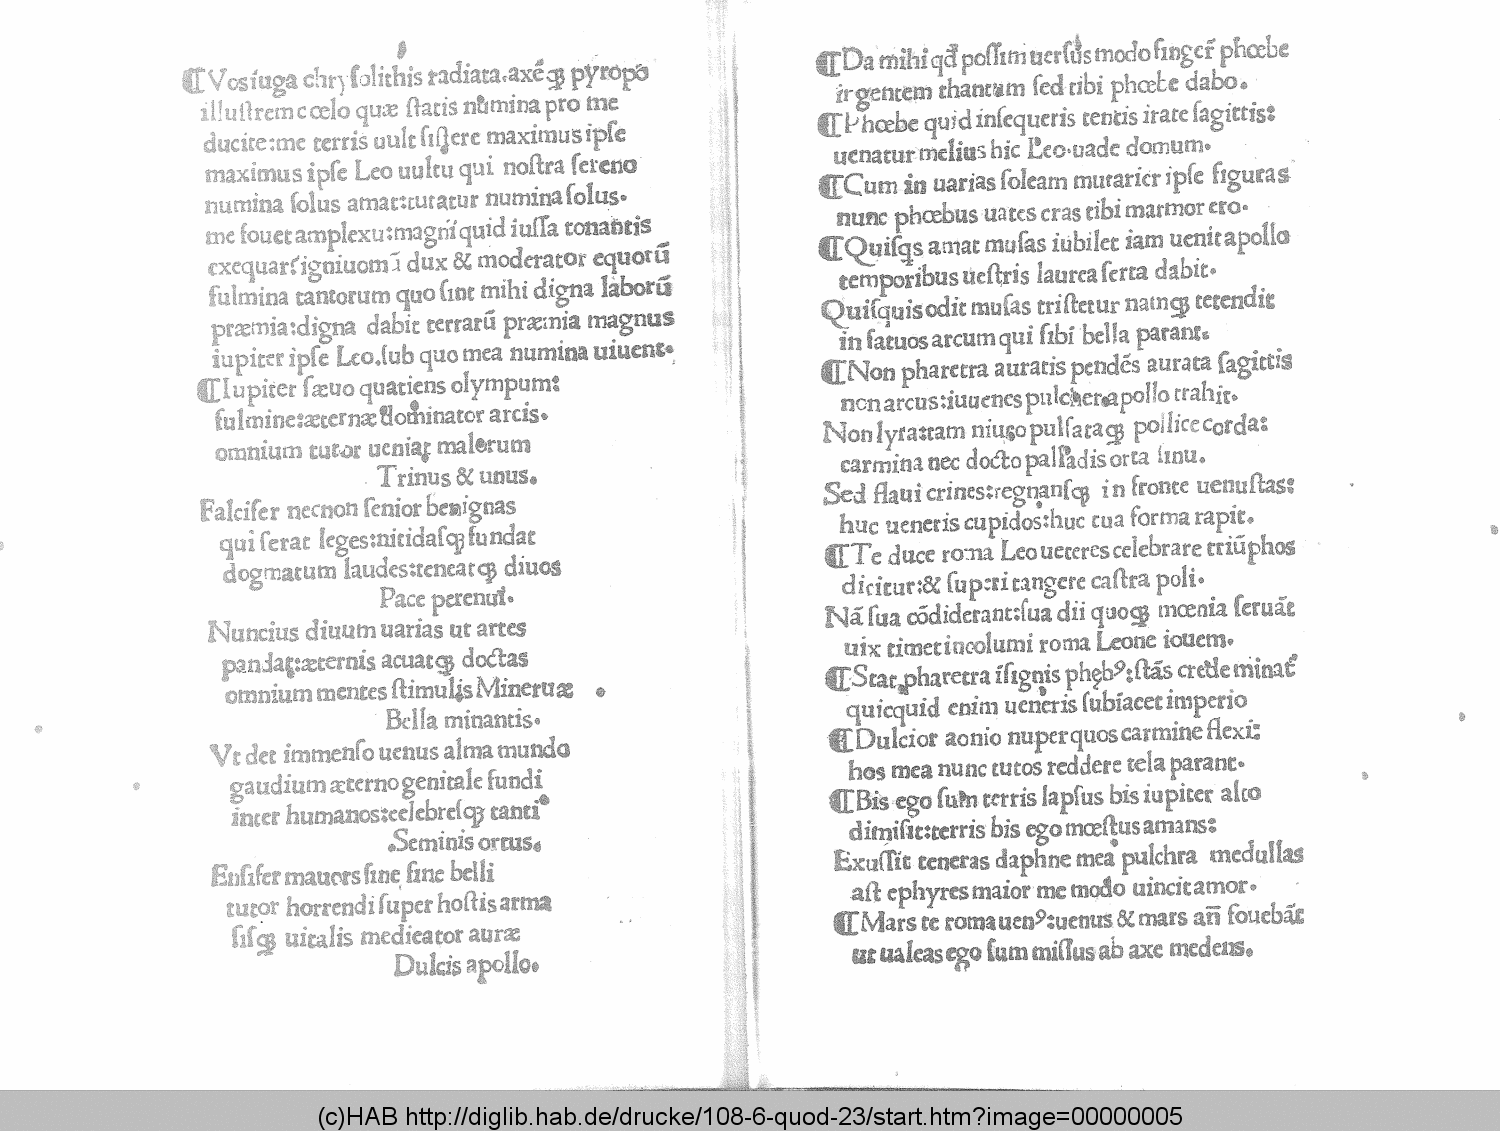 ¶Vos iuga chrysolithis radiata.axéqꝫ pyropo
illustrem cœlo quæ statis numina pro me
ducite:me terris uult sistere maximus ipse
maximus ipse Leo uultu qui nostra sereno
numina solus amat:tutatur numina solus.
me fouet amplexu:magni quid iussa tonantis
exequar:signiuomū dux & moderator equorū
fulmina tantorum quo sint mihi digna laborū
præmia:digna dabit terrarū præmia magnus
iupiter ipse Leo.sub quo mea numina uiuent.
¶Iupiter sæuo quatiens olympum:
fulmine:æternæ dominator arcis.
omnium tutor ueniat malorum
Trinus & unus.
Falcifer necnon senior benignas
qui ferat leges:nitidasqꝫ fundat
dogmatum laudes:teneatqꝫ diuos
Pace perenni.
Nuncius diuum uarias ut artes
pandat:æternis acuatqꝫ doctas
omnium mentes stimulis Mineruæ .
Bella minantis.
Vt det immenso uenus alma mundo
gaudium æterno genitale fundi
inter humanos:celebresqꝫ tanti
Seminis ortus.
Ensifer mauors sine sine belli
tutor horrendi super hostis arma
sisqꝫ uitalis medicator auræ
Dulcis apollo.
¶Da mihi qd possim uersus modo finger̄ phœbe
irgentem thantum sed tibi phœbe dabo.
¶Phœbe quid insequeris tentis irate sagittis:
uenatur melius hic Leo.uade domum.
¶Cum in uarias soleam mutarier ipse figuras
nunc phœbus uates cras tibi marmor ero.
¶Quisqs amat musas iubilet iam uenit apollo
temporibus uestris laurea serta dabit.
Quisquis odit musas tristetur namqꝫ tetendit
in fatuos arcum qui sibi bella parant.
¶Non pharetra auratis pendēs aurata sagittis
non arcus:iuuenes pulcher apollo trahit.
Non lyra:tam niueo pulsataqꝫ pollice corda:
carmina nec docto palladis orta sinu.
Sed flaui crines:regnansqꝫ in fronte uenustas:
huc ueneris cupidos:huc tua forma rapit.
¶Te duce roma Leo ueteres celebrare triūphos
dicitur:& superi tangere castra poli.
Nā sua cōdiderant:sua dii quoqꝫ mœnia seruāt
uix timet incolumi roma Leone iouem.
¶Stat pharetra īsignis phęb⁹:stās crede minat̄
quicquid enim ueneris subiacet imperio
¶Dulcior aonio nuper quos carmine flexi:
hos mea nunc tutos reddere tela parant.
¶Bis ego sum terris lapsus bis iupiter alto
dimisit:terris bis ego mœstus amans:
Exussit teneras daphne mea pulchra medullas
ast ephyres maior me modo uincit amor.
¶Mars te roma uen⁹:uenus & mars an̄ fouebāt
ut ualeas ego sum missus ab axe medens.
(c)HAB http://diglib.hab.de/drucke/108-6-quod-23/start.htm?image=00000005